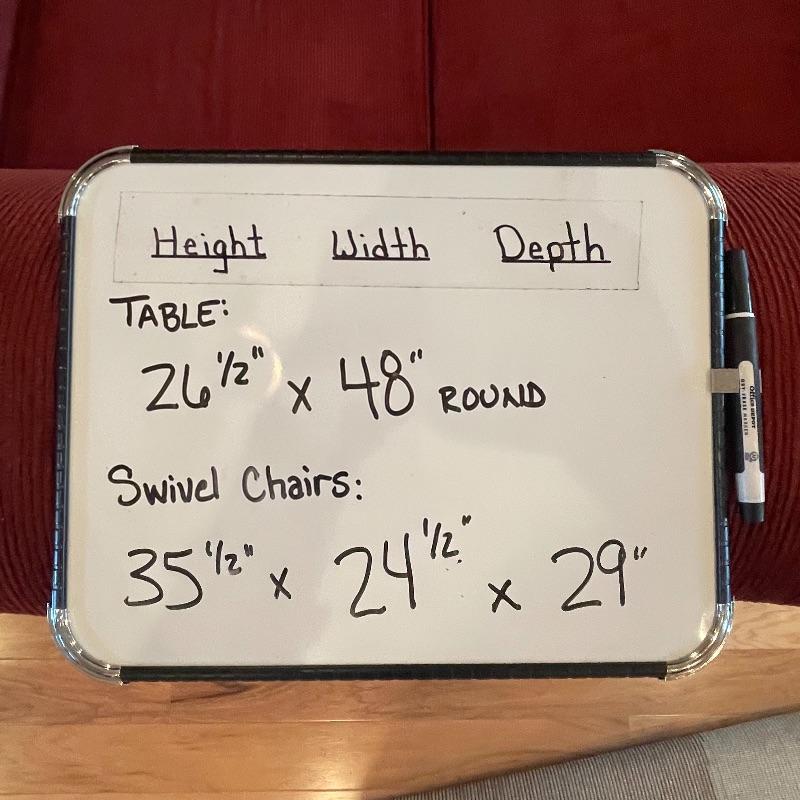 Height Width Depth
TABLE:
26 1/2" x 48" ROUND
Swivel Chairs:
35 1/2" x 24 1/2" x 29"
Office DEPOT
DRY-ERASE MARKER